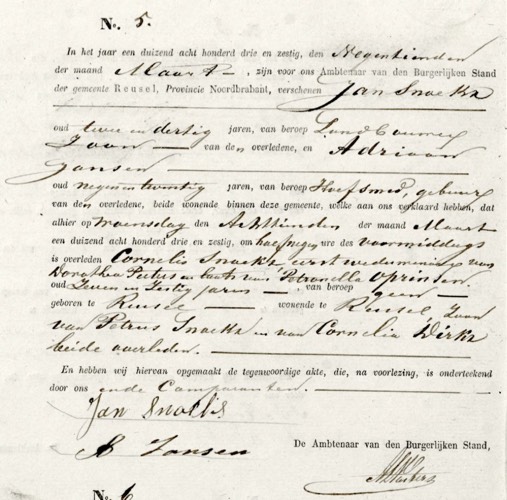 No. 5.
In het jaar een duizend acht honderd drie en zestig, den Negentienden
der maand Maart, zijn voor ons Ambtenaar van den Burgerlijken Stand
der gemeente Reusel, Provincie Noordbrabant, verschenen Jan Snoeks
oud twee en dertig jaren, van beroep Landbouwer
Zoon van den overledene, en Adriaan
Jansen
oud negenentwintig jaren, van beroep Hoefsmid, gebuur
van den overledene, beide wonende binnen deze gemeente, welke aan ons verklaard hebben, dat
alhier op woensdag den Achttienden der maand Maart
een duizend acht honderd drie en zestig, om half negen ure des voormiddags
is overleden Cornelis Snoeks eerst weduwenaar van
Dorothea Peeters en laatst van Petronella Oprinsen
oud Zeven en Zestig jaren, van beroep geen
geboren te Reusel wonende te Reusel Zoon
van Petrus Snoeks en van Cornelia Dirks
beide overleden.
En hebben wij hiervan opgemaakt de tegenwoordige akte, die, na voorlezing, is onderteekend
door ons ende Comparanten.
Jan Snoeks
A Jansen
De Ambtenaar van den Burgerlijken Stand,
No. 6